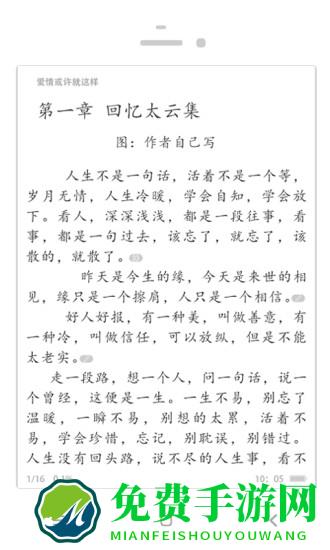 爱情或许就这样
第一章 回忆太云集
图：作者自己写
人生不是一句话，活着不是一个等，
岁月无情，人生冷暖，学会自知，学会放
下。看人，深深浅浅，都是一段往事，看
事，都是一句过去，该忘了，就忘了，该
散的，就散了。
昨天是今生的缘，今天是来世的相
见，缘只是一个擦肩，人只是一个相信。
好人好报，有一种美，叫做善意，有
一种冷，叫做信任，可以放纵，但是不能
太老实。
走一段路，想一个人，问一句话，说一
个曾经，这便是一生。一生不易，别忘了
温暖，一瞬不易，别想的太累，活着不
易，学会珍惜，忘记，别耽误，别错过。
人生没有回头路，说不尽的人生事，看不
1/16 0.1%
10：05
免费手游网
MIANFEISHOUYOUWANG